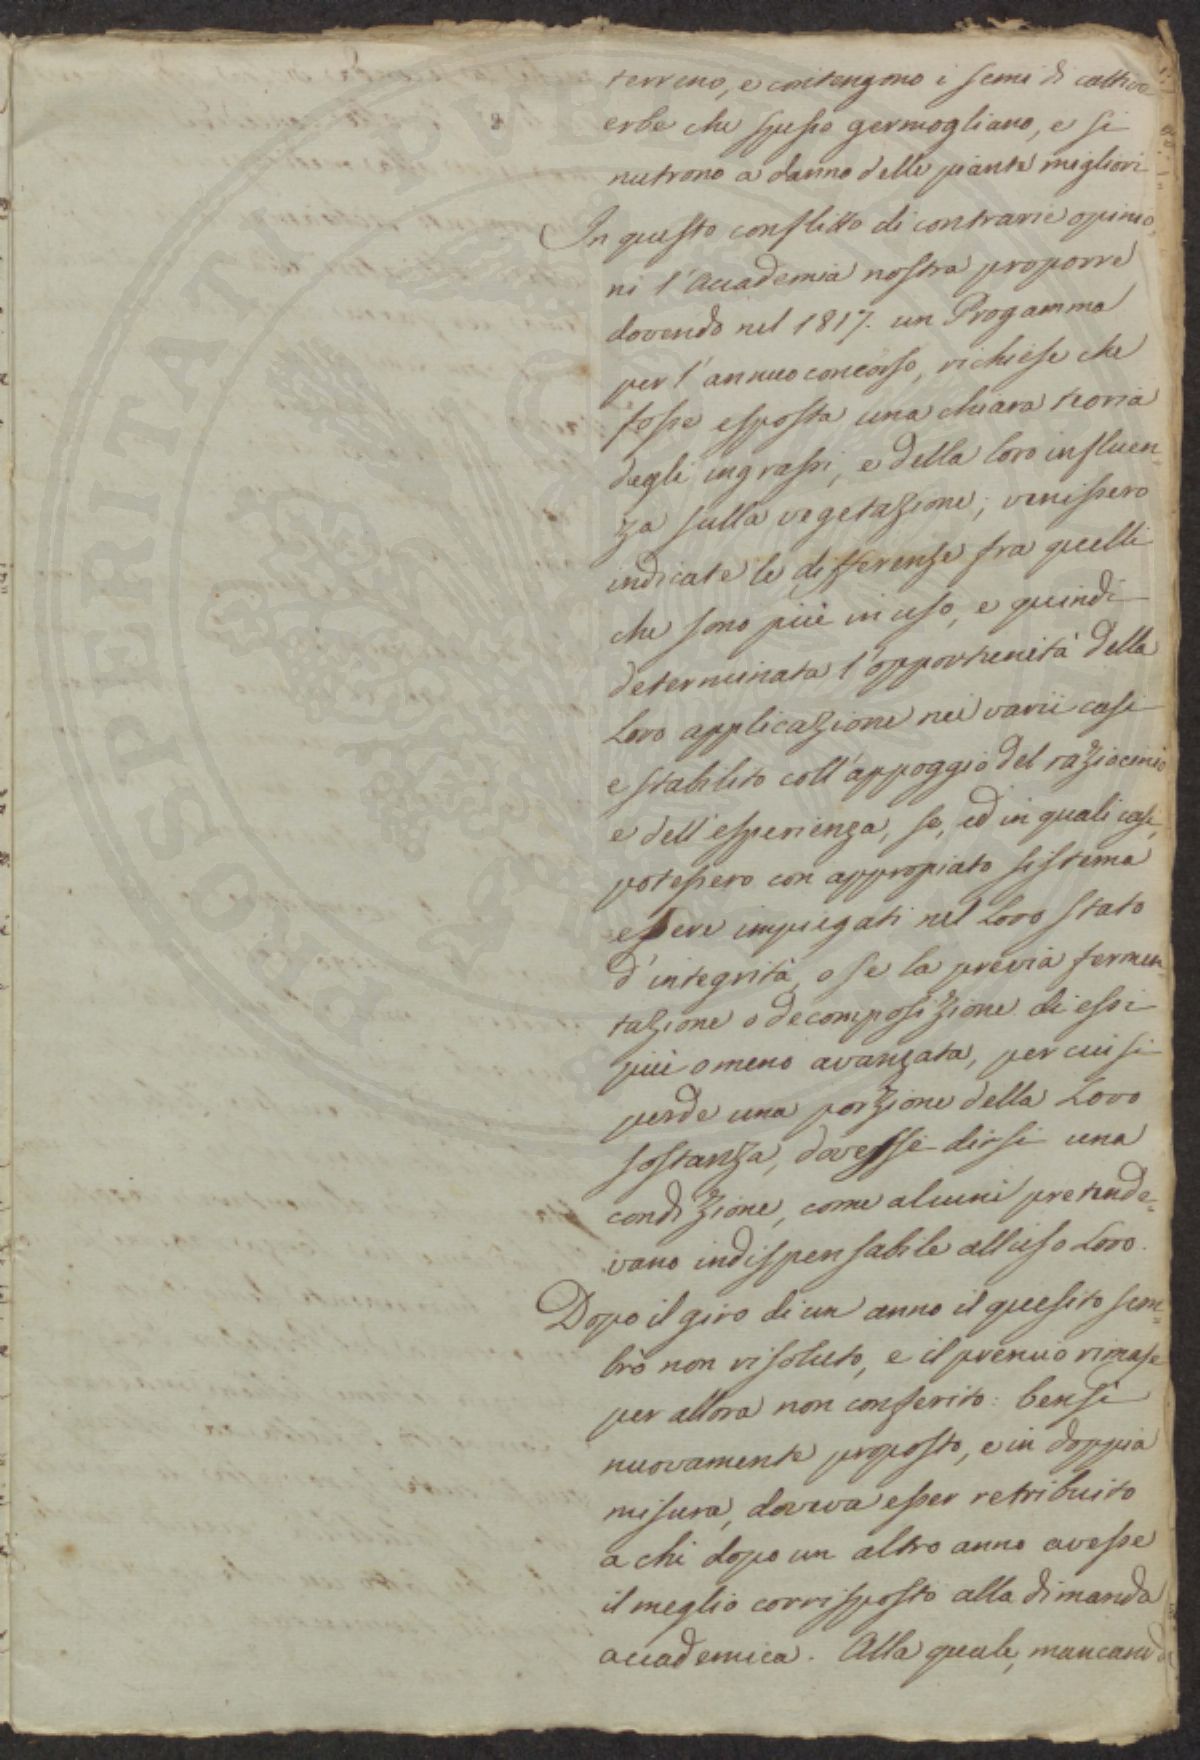 terreno, e contengono i semi di cattive
erbe che spesso germogliano, e si
nutrono a danno delle piante migliori
In questo conflitto di contrarie opinio,
ni l'Accademia nostra proporre
dovendo nel 1817. un Progamma
per l'annuo concorso, richiese che
fosse esposta una chiara teoria
degli ingrassi, e della loro influen=
za sulla vegetazione; venissero
indicate le differenze fra quelli
che sono più in uso, e quindi
determinata l'opportunità della
Loro applicazione nei varii casi
e stabilito coll'appoggio del raziocinio
e dell'esperienza, se, ed in quali casi,
potessero con appropiato sistema
essere impiegati nel Loro stato
d'integrità, o se la previa fermen=
tazione o decomposizione di essi
più o meno avanzata, per cui si
perde una porzione della Loro
sostanza, dovesse dirsi una
condizione, come alcuni pretende=
vano indispensabile all'uso Loro.
Dopo il giro di un anno il quesito sem=
brò non risoluto, e il premio rimase
per allora non conferito: bensì
nuovamente proposto, e in doppia
misura, doveva esser retribuito
a chi dopo un altro anno avesse
il meglio corrisposto alla dimanda
accademica. Alla quale, mancand
PROSPERITATI PUBL